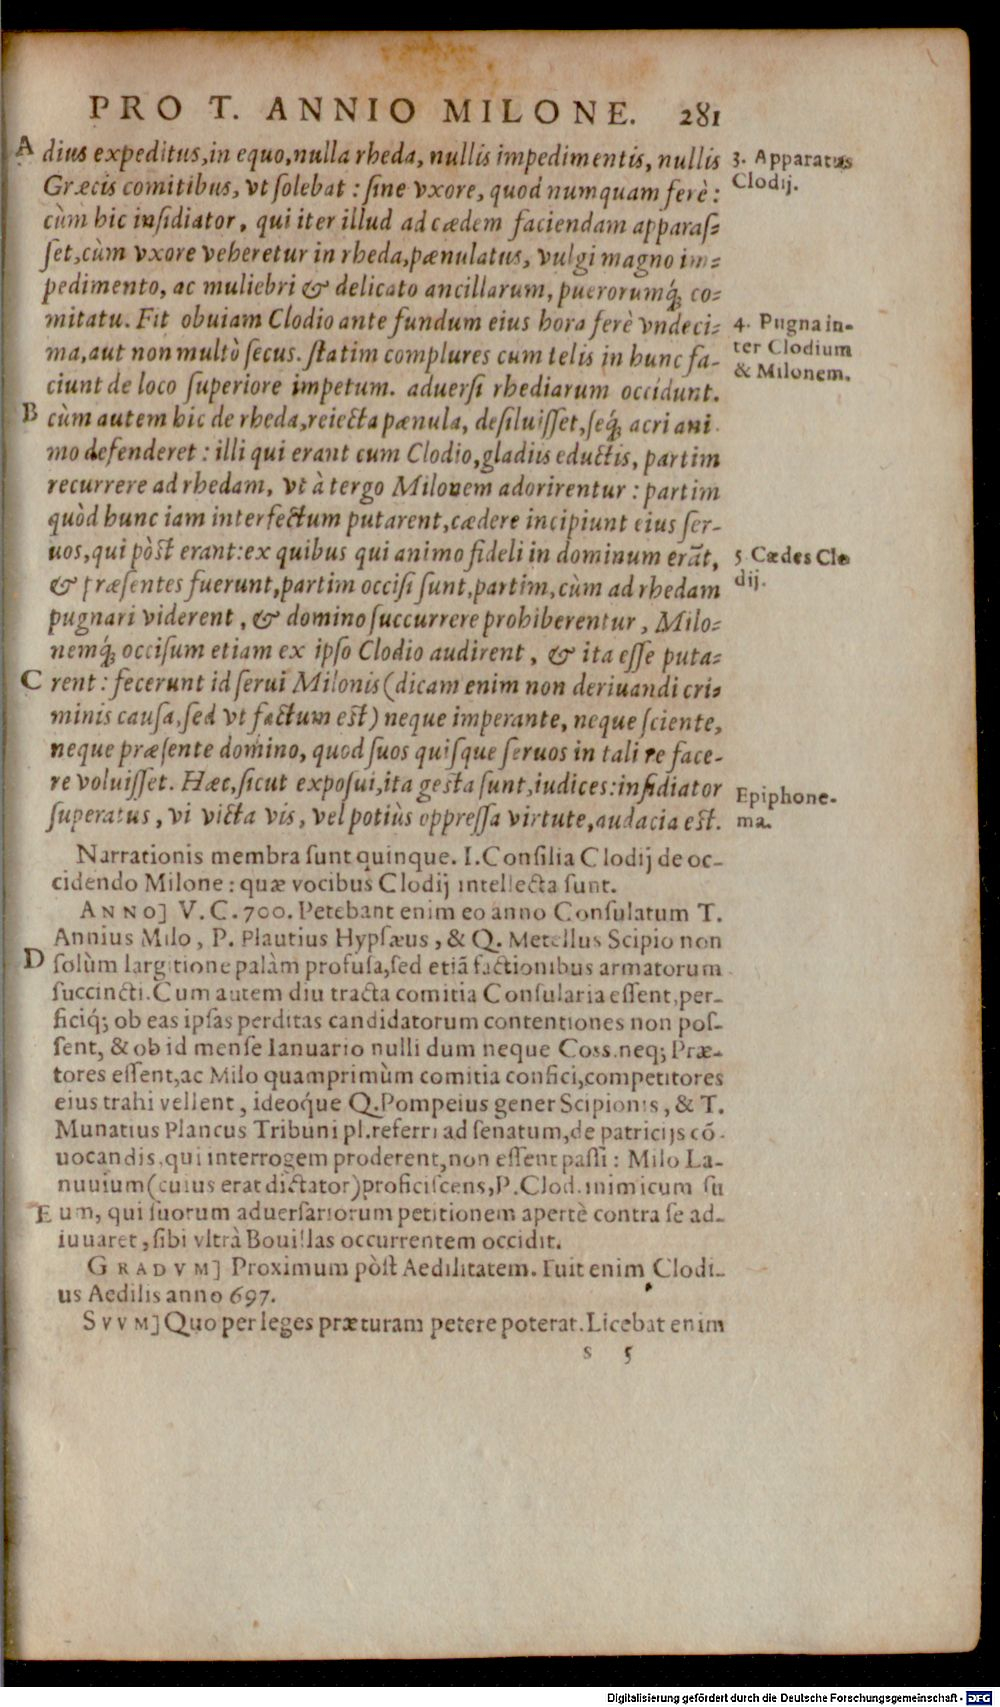 PRO T. ANNIO MILONE. 281
A dius expeditus, in equo, nulla rheda, nullis impedimentis, nullis
3. Apparatus
Græcis comitibus, vt solebat : sine vxore, quod numquam ferè :
Clodij.
cùm hic insidiator, qui iter illud ad cædem faciendam apparas-
set, cùm vxore veheretur in rheda, pænulatus, vulgi magno im-
pedimento, ac muliebri & delicato ancillarum, puerorumq́; co-
mitatu. Fit obuiam Clodio ante fundum eius hora ferè vndeci-
4. Pugna in-
ma, aut non multò secus. statim complures cum telis in hunc fa-
ter Clodium
ciunt de loco superiore impetum. aduersi rhediarum occidunt.
& Milonem.
B cùm autem hic de rheda, reiecta pænula, desiluisset, seq́; acri ani-
mo defenderet : illi qui erant cum Clodio, gladiis eductis, partim
recurrere ad rhedam, vt à tergo Milonem adorirentur : partim
quòd hunc iam interfectum putarent, cædere incipiunt eius ser-
uos, qui pòst erant: ex quibus qui animo fideli in dominum erãt,
5 Cædes Clo
& præsentes fuerunt, partim occisi sunt, partim, cùm ad rhedam
dij.
pugnari viderent, & domino succurrere prohiberentur, Milo-
nemq́; occisum etiam ex ipso Clodio audirent, & ita esse puta-
C rent : fecerunt id serui Milonis (dicam enim non deriuandi cri-
minis causa, sed vt factum est) neque imperante, neque sciente,
neque præsente domino, quod suos quisque seruos in tali re face-
re voluisset. Hæc, sicut exposui, ita gesta sunt, iudices: insidiator
Epiphone-
superatus, vi victa vis, vel potiùs oppressa virtute, audacia est.
ma.
Narrationis membra sunt quinque. I. Consilia Clodij de oc-
cidendo Milone : quæ vocibus Clodij intellecta sunt.
ANNO] V. C. 700. Petebant enim eo anno Consulatum T.
Annius Milo, P. Plautius Hypsæus, & Q. Metellus Scipio non
D solùm largitione palàm profusa, sed etiã factionibus armatorum
succincti. Cum autem diu tracta comitia Consularia essent, per-
ficiq́; ob eas ipsas perditas candidatorum contentiones non pos-
sent, & ob id mense Ianuario nulli dum neque Coss. neq; Præ-
tores essent, ac Milo quamprimùm comitia confici, competitores
eius trahi vellent, ideoque Q. Pompeius gener Scipionis, & T.
Munatius Plancus Tribuni pl. referri ad senatum, de patricijs cõ-
uocandis, qui interrogem proderent, non essent passi : Milo La-
nuuium (cuius erat dictator) proficiscens, P. Clod. inimicum su
E um, qui suorum aduersariorum petitionem apertè contra se ad-
iuuaret, sibi vltrà Bouillas occurrentem occidit.
GRADVM] Proximum pòst Aedilitatem. Fuit enim Clodi-
us Aedilis anno 697.
SVVM] Quo per leges præturam petere poterat. Licebat enim
s 5
Digitalisierung gefördert durch die Deutsche Forschungsgemeinschaft - DFG